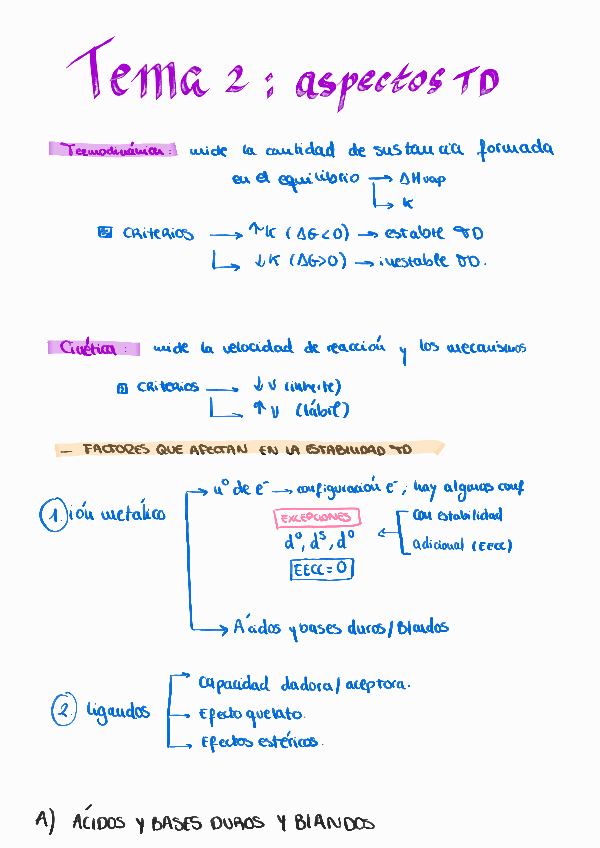 Tema 2: aspectos TD
Termodinámica: mide la cantidad de sustancia formada
en el equilibrio → ΔHvap
↳ K
criterios → ↑K (ΔG<0) → estable TD
↳ ↓K (ΔG>0) → inestable TD.
Cinética: mide la velocidad de reacción y los mecanismos
criterios → ↓V (inerte)
↳ ↑V (lábil)
- FACTORES QUE AFECTAN EN LA ESTABILIDAD TD
1. ión metálico → nº de e⁻ → configuración e⁻; hay algunas conf
EXCEPCIONES
con estabilidad
d⁰, d⁵, d⁰
adicional (EECC)
EECC = 0
→ Ácidos y bases duros/Blandos
2. ligandos → capacidad dadora/aceptora.
→ Efecto quelato.
→ Efectos estéricos.
A) ÁCIDOS Y BASES DUROS Y BLANDOS